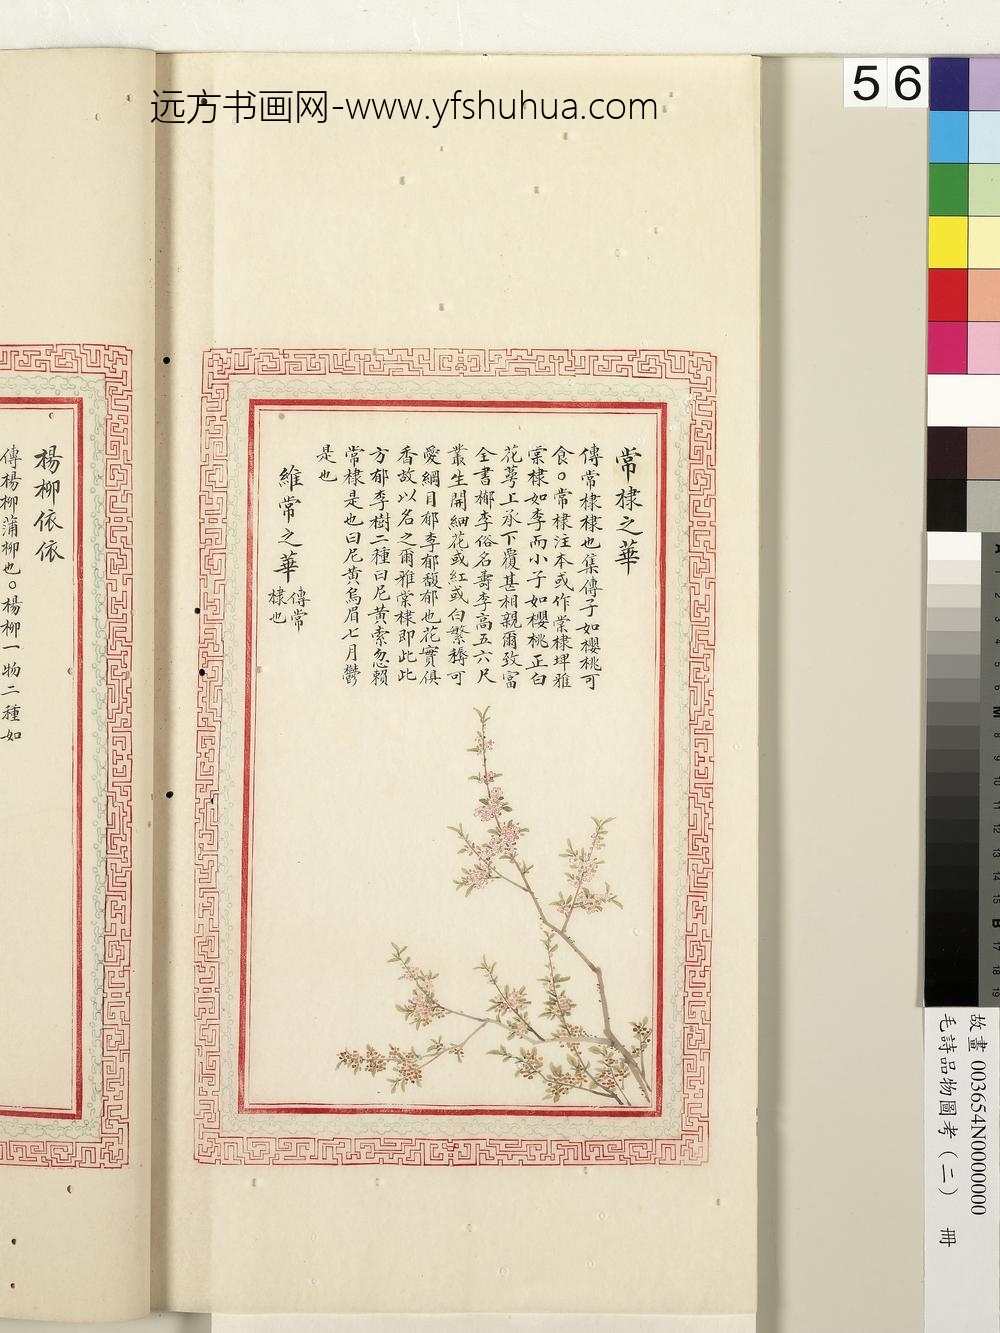 远方书画网-www.yfshuhua.com
56
常棣之華
傳常棣棣也集傳子如櫻桃可
食○常棣注本或作棠棣埤雅
棠棣如李而小子如櫻桃正白
花萼上承下覆甚相親爾致富
全書郁李俗名壽李高五六尺
叢生開細花或紅或白繁穠可
愛綱目郁李郁馥郁也花實俱
香故以名之爾雅棠棣即此此
方郁李樹二種曰尼黄索忽賴
常棣是也曰尼黄烏眉七月鬱
是也
維常之華
傳常
棣也
楊柳依依
傳楊柳蒲柳也○楊柳一物二種如
故畫 003654N0000000
毛詩品物圖考（二） 冊